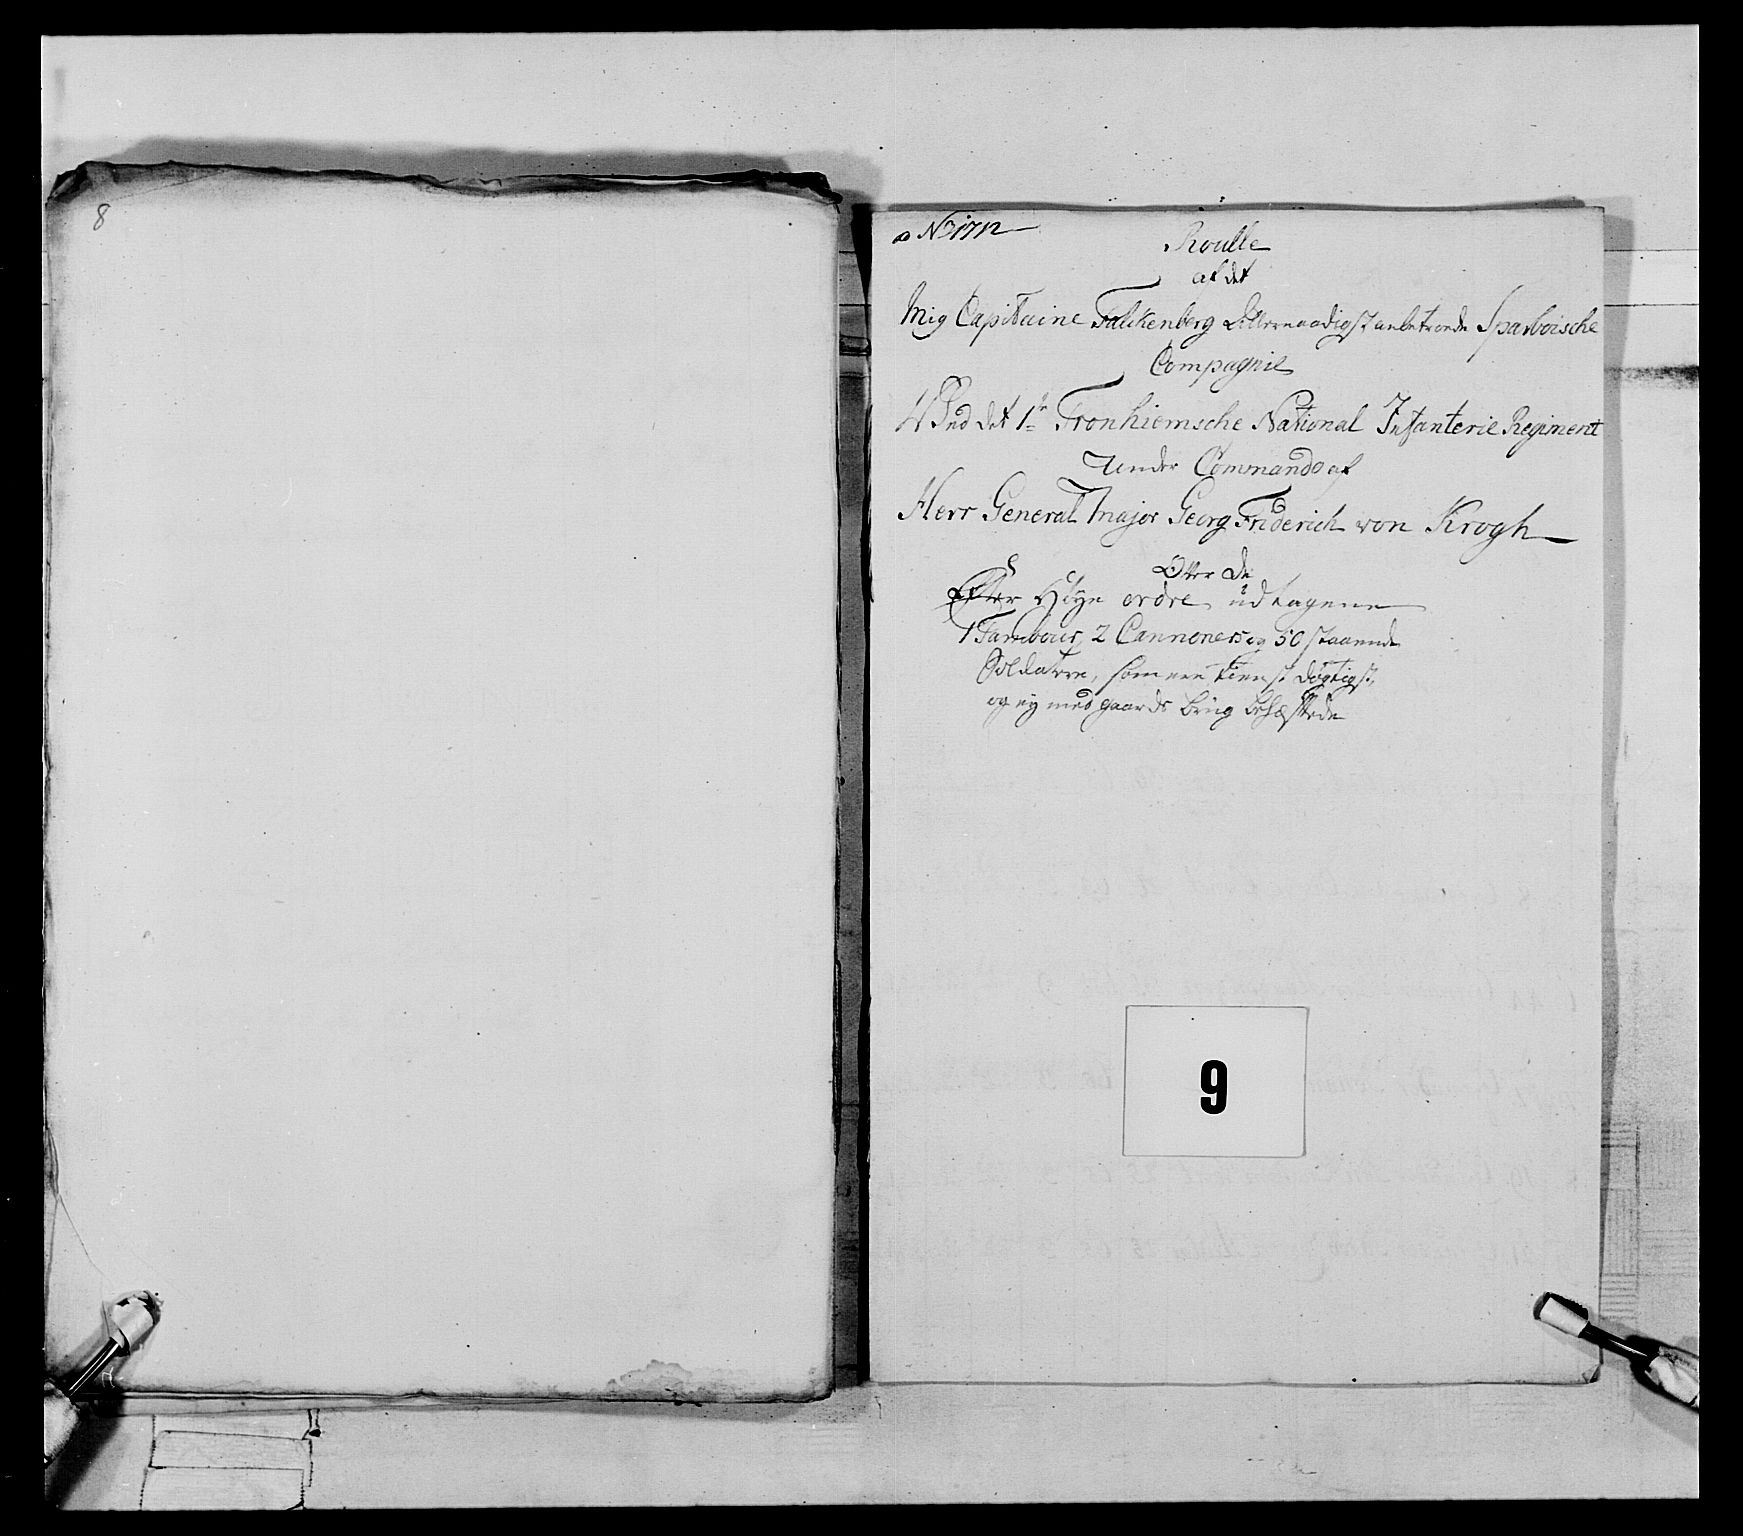 8
a No 1712
Roulle
af det
Mig Capitaine Falckenberg Allernaadigst anbetroede Sparboische
Compagnie
Ved det 1te Tronhiemsche National Infanterie Regiment
Under Commando af
Herr General Major Georg Friderich von Krogh
Over de
Efter Høye ordre udtagene
1 Tambour, 2 Cannoners og 50 staaende
Soldatere, som ere tienst dygtigst,
og ey med gaards brug behæftede
9